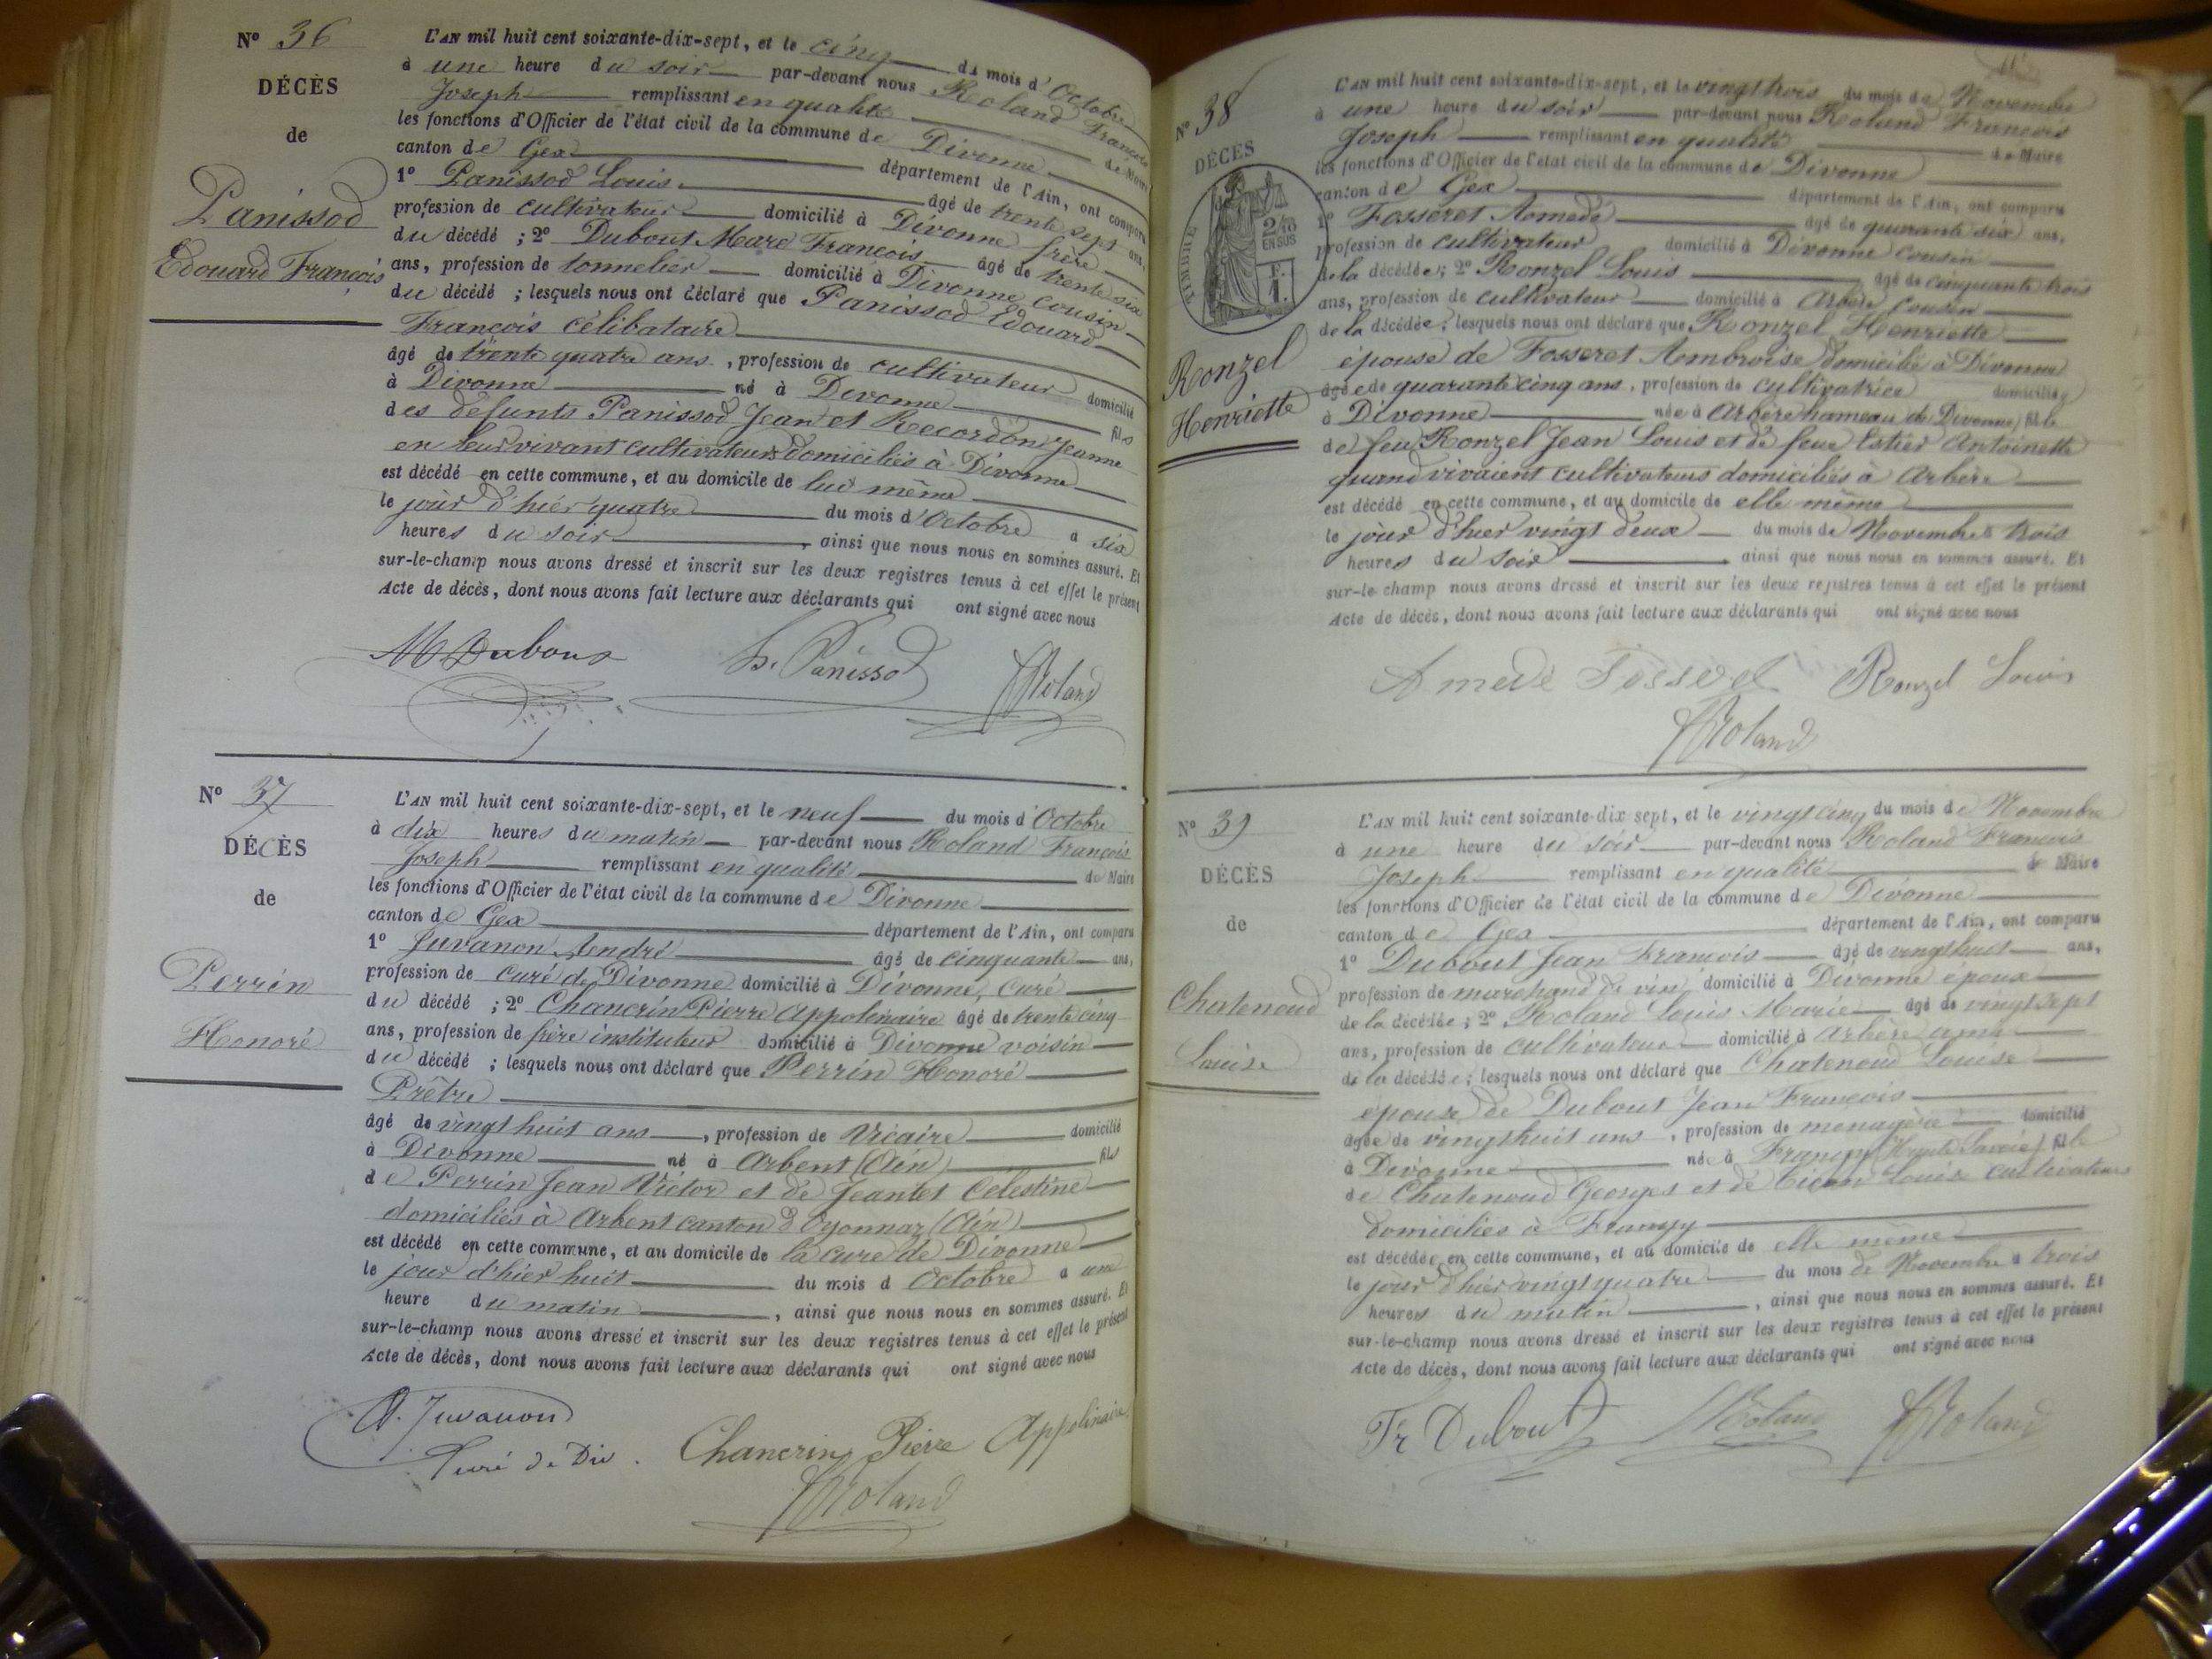 Nº 36
DÉCÈS
de
Panissod
Edouard François
L'AN mil huit cent soixante-dix-sept, et le cinq du mois d'Octobre
à une heure du soir par-devant nous Roland François
Joseph remplissant en qualité de Maire
les fonctions d'Officier de l'état civil de la commune de Divonne
canton de Gex département de l'Ain, ont comparu
1º Panissod Louis âgé de trente sept ans,
profession de cultivateur domicilié à Divonne frère
du décédé ; 2º Dubout Marc François âgé de trente six
ans, profession de tonnelier domicilié à Divonne cousin
du décédé ; lesquels nous ont déclaré que Panissod Edouard
François célibataire
âgé de trente quatre ans, profession de cultivateur domicilié
à Divonne né à Divonne fils
des défunts Panissod Jean et Recordon Jeanne
en leur vivant cultivateurs domiciliés à Divonne
est décédé en cette commune, et au domicile de lui même
le jour d'hier quatre du mois d'Octobre à six
heures du soir, ainsi que nous nous en sommes assuré. Et
sur-le-champ nous avons dressé et inscrit sur les deux registres tenus à cet effet le présent
Acte de décès, dont nous avons fait lecture aux déclarants qui ont signé avec nous
M Dubout L. Panissod Roland
Nº 37
DÉCÈS
de
Perrin
Honoré
L'AN mil huit cent soixante-dix-sept, et le neuf du mois d'Octobre
à dix heures du matin par-devant nous Roland François
Joseph remplissant en qualité de Maire
les fonctions d'Officier de l'état civil de la commune de Divonne
canton de Gex département de l'Ain, ont comparu
1º Juvanon André âgé de cinquante ans,
profession de curé de Divonne domicilié à Divonne, curé
du décédé ; 2º Chancrin Pierre Appolinaire âgé de trente cinq
ans, profession de frère instituteur domicilié à Divonne voisin
du décédé ; lesquels nous ont déclaré que Perrin Honoré
Prêtre
âgé de vingt huit ans, profession de Vicaire domicilié
à Divonne né à Arbent (Ain) fils
de Perrin Jean Victor et de Jeantet Célestine
domiciliés à Arbent canton d'Oyonnaz (Ain)
est décédé en cette commune, et au domicile de la cure de Divonne
le jour d'hier huit du mois d Octobre à une
heure du matin, ainsi que nous nous en sommes assuré. Et
sur-le-champ nous avons dressé et inscrit sur les deux registres tenus à cet effet le présent
Acte de décès, dont nous avons fait lecture aux déclarants qui ont signé avec nous
A. Juvanon
Curé de Div. Chancrin Pierre Appolinaire
Roland
Nº 38
DÉCÈS
TIMBRE
2/10
EN SUS
F.
1.
Ronzel
Henriette
L'AN mil huit cent soixante-dix-sept, et le vingt trois du mois de Novembre
à une heure du soir par-devant nous Roland François
Joseph remplissant en qualité de Maire
les fonctions d'Officier de l'état civil de la commune de Divonne
canton de Gex département de l'Ain, ont comparu
1º Fosseret Amédé âgé de quarante six ans,
profession de cultivateur domicilié à Divonne cousin
de la décédée ; 2º Ronzel Louis âgé de cinquante trois
ans, profession de cultivateur domicilié à Arbère cousin
de la décédée ; lesquels nous ont déclaré que Ronzel Henriette
épouse de Fosseret Ambroise domicilié à Divonne
âgée de quarante cinq ans, profession de cultivatrice domiciliée
à Divonne née à Arbère hameau de Divonne, fille
de feu Ronzel Jean Louis et de feue Estier Antoinette
quand vivaient cultivateurs domiciliés à Arbère
est décédé en cette commune, et au domicile de elle même
le jour d'hier vingt deux du mois de Novembre à trois
heures du soir ainsi que nous nous en sommes assuré. Et
sur-le-champ nous avons dressé et inscrit sur les deux registres tenus à cet effet le présent
Acte de décès, dont nous avons fait lecture aux déclarants qui ont signé avec nous
Amédé Fosseret Ronzel Louis
Roland
Nº 39
DÉCÈS
de
Chatenoud
Louise
L'AN mil huit cent soixante-dix sept, et le vingt cinq du mois de Novembre
à une heure du soir par-devant nous Roland François
Joseph remplissant en qualité de Maire
les fonctions d'Officier de l'état civil de la commune de Divonne
canton de Gex département de l'Ain, ont comparu
1º Dubout Jean François âgé de vingt huit ans,
profession de marchand de vin domicilié à Divonne époux
de la décédée ; 2º Roland Louis Marie âgé de vingt sept
ans, profession de cultivateur domicilié à Arbère ami
de la décédée ; lesquels nous ont déclaré que Chatenoud Louise
épouse de Dubout Jean François
âgée de vingt huit ans, profession de ménagère domicilié
à Divonne née à Frangy (Haute Savoie) fille
de Chatenoud Georges et de Louise cultivateurs
domiciliés à Frangy
est décédée en cette commune, et au domicile de elle même
le jour d'hier vingt quatre du mois de Novembre à trois
heures du matin, ainsi que nous nous en sommes assuré. Et
sur-le-champ nous avons dressé et inscrit sur les deux registres tenus à cet effet le présent
Acte de décès, dont nous avons fait lecture aux déclarants qui ont signé avec nous
Fr Dubout Roland Roland